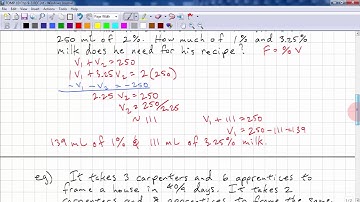 250 mL of 2%. How much of 1% and 3.25%
milk does he need for his recipe? F = % V
V₁ + V₂ = 250
1V₁ + 3.25V₂ = 2(250)
-V₁ - V₂ = -250
2.25 V₂ = 250
V₂ = 250/2.25
≈ 111
V₁ + 111 = 250
V₁ = 250 - 111 = 139
139 mL of 1% & 111 mL of 3.25% milk.
eg) It takes 3 carpenters and 6 apprentices to
frame a house in days. It takes 2
carpenters and 8 apprentices to frame the same